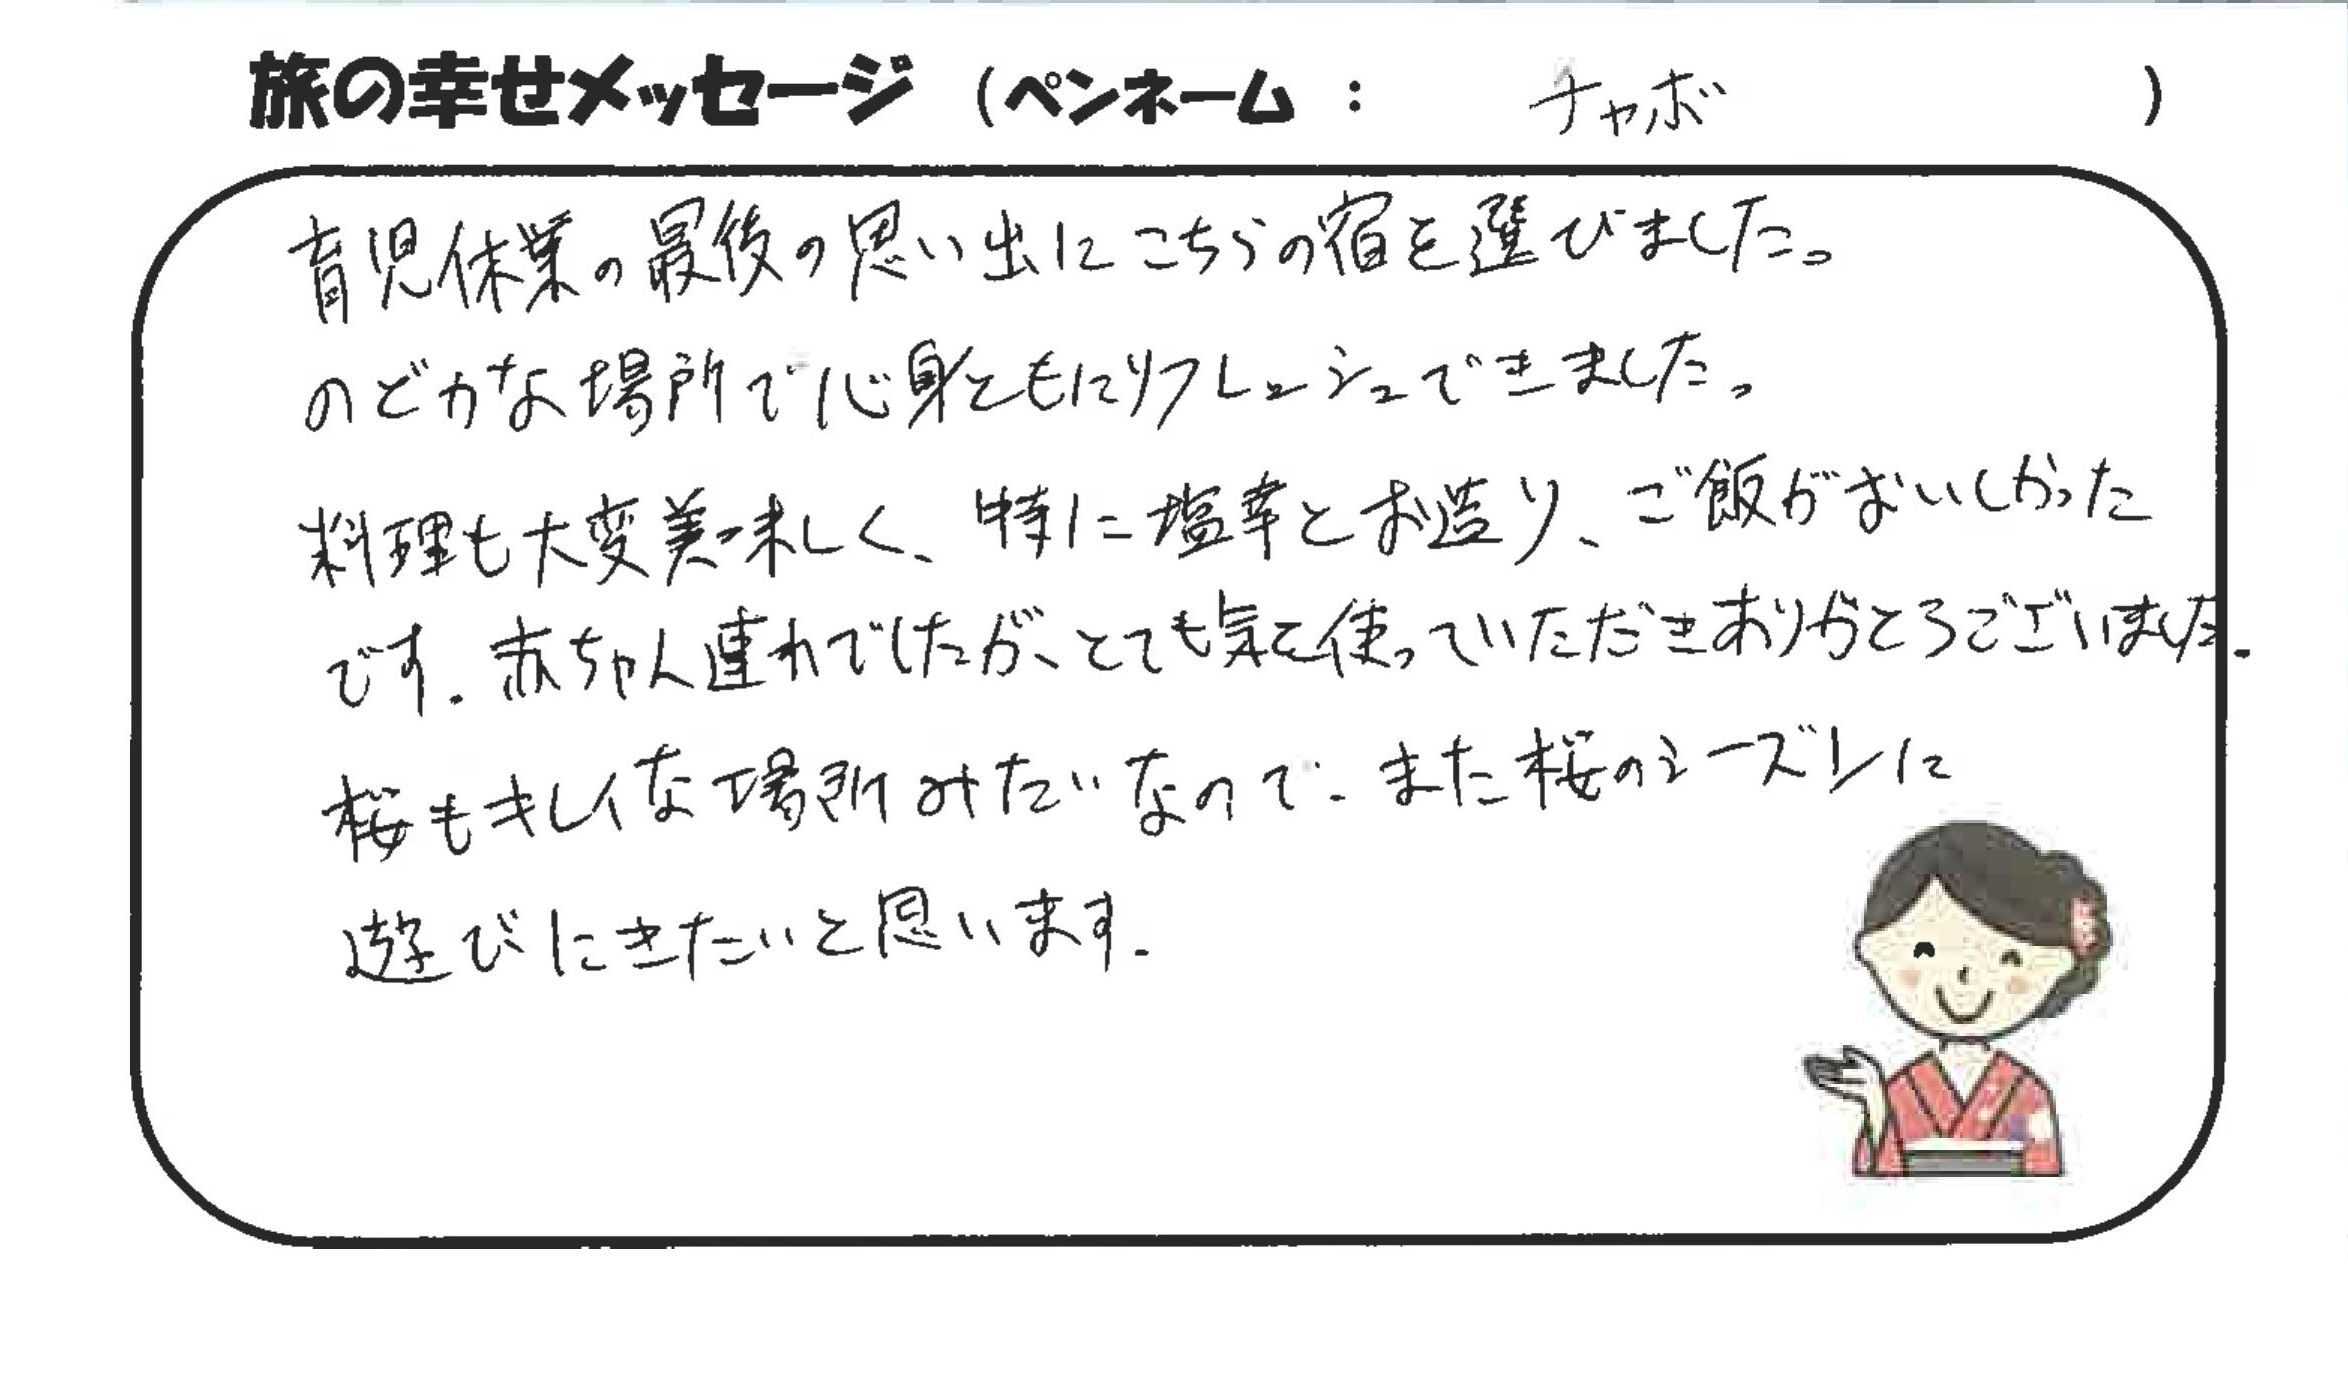 旅の幸せメッセージ (ペンネーム : チャボ )
育児休業の最後の思い出にこちらの宿を選びました。
のどかな場所で心身ともにリフレッシュできました。
料理も大変美味しく、特に塩辛とお造り、ご飯がおいしかった
です. 赤ちゃん連れでしたが、とても気を使っていただきありがとうございました.
桜もキレイな場所みたいなので. また桜のシーズンに
遊びにきたいと思います.